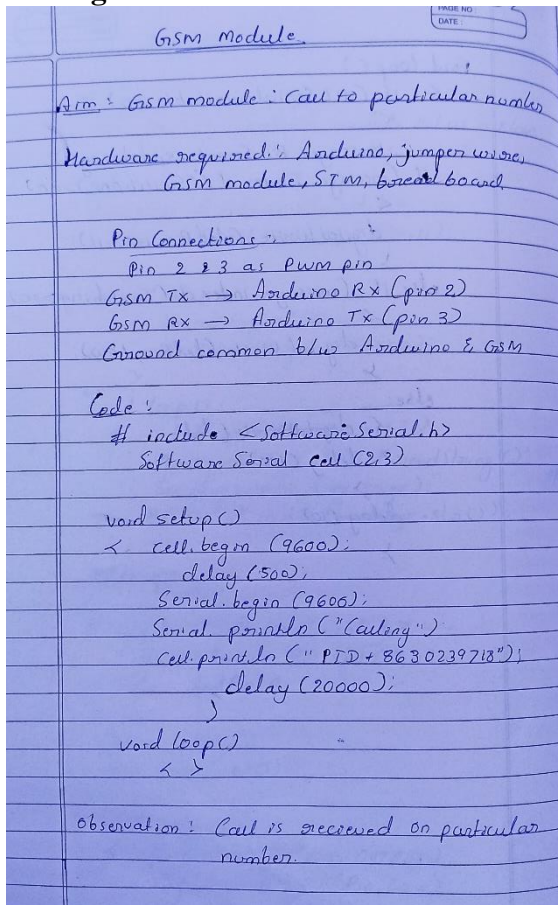 PAGE NO
DATE
GSM module
Aim : GSM module : Call to particular number
Hardware required : Arduino, jumper wire,
GSM module, SIM, bread board
Pin Connections :
Pin 2 & 3 as PWM pin
GSM TX → Arduino RX (pin 2)
GSM RX → Arduino TX (pin 3)
Ground common b/w Arduino & GSM
Code :
# include <Software Serial.h>
Software Serial cell (2,3)
void setup()
{ cell.begin (9600);
delay (500);
Serial.begin (9600);
Serial. println ("Calling")
cell.println ("PTD + 8630239718");
delay (20000);
}
void loop()
{ }
Observation : Call is recieved on particular
number.